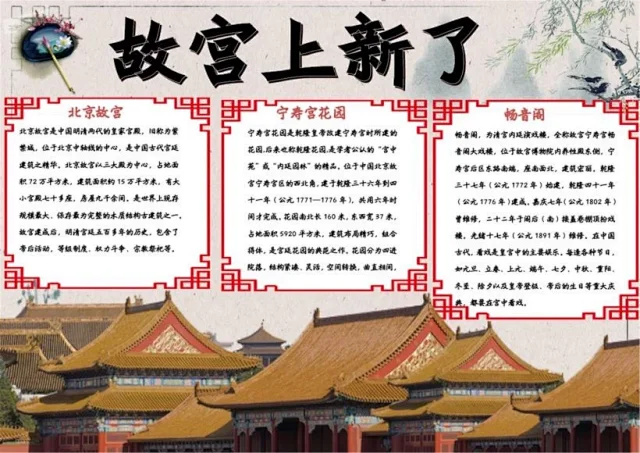 故宫上新了
北京故宫
北京故宫是中国明清两代的皇家宫殿，旧称为紫
禁城，位于北京中轴线的中心，是中国古代宫廷
建筑之精华。北京故宫以三大殿为中心，占地面
积 72 万平方米，建筑面积约 15 万平方米，有大
小宫殿七十多座，房屋九千余间，是世界上现存
规模最大、保存最为完整的木质结构古建筑之一。
故宫建成后，明清宫廷五百多年的历史，包含了
帝后活动，等级制度、权力斗争、宗教祭祀等。
宁寿宫花园
宁寿宫花园是乾隆皇帝改建宁寿宫时所建的
花园，后来也称乾隆花园，是学者公认的“宫中
苑”或“内廷园林”的精品，位于中国北京故
宫宁寿宫区的西北角，建于乾隆三十六年到四
十一年（公元 1771—1776 年），共用六年时
间才完成，花园南北长 160 米，东西宽 37 米，
占地面积 5920 平方米，建筑布局精巧，组合
得体，是宫廷花园的典范之作。花园分为四进
院落，结构紧凑、灵活，空间转换，曲直相间，
畅音阁
畅音阁，为清宫内廷演戏楼，全称故宫宁寿宫畅
音阁大戏楼，位于故宫博物院内养性殿东侧，
宁寿宫后区东路南端，座南面北，建筑宏丽。乾隆
三十七年（公元 1772 年）始建，乾隆四十一年
（公元 1776 年）建成，嘉庆七年（公元 1802 年）
曾维修，二十二年于阁后（南）接盖卷棚顶扮戏
楼，光绪十七年（公元 1891 年）维修。在中国
古代，看戏是皇宫中的主要娱乐，每逢各种节日，
如元旦、立春、上元、端午、七夕、中秋、重阳、
冬至、除夕以及皇帝登极、帝后的生日等重大庆
典，都要在宫中看戏。